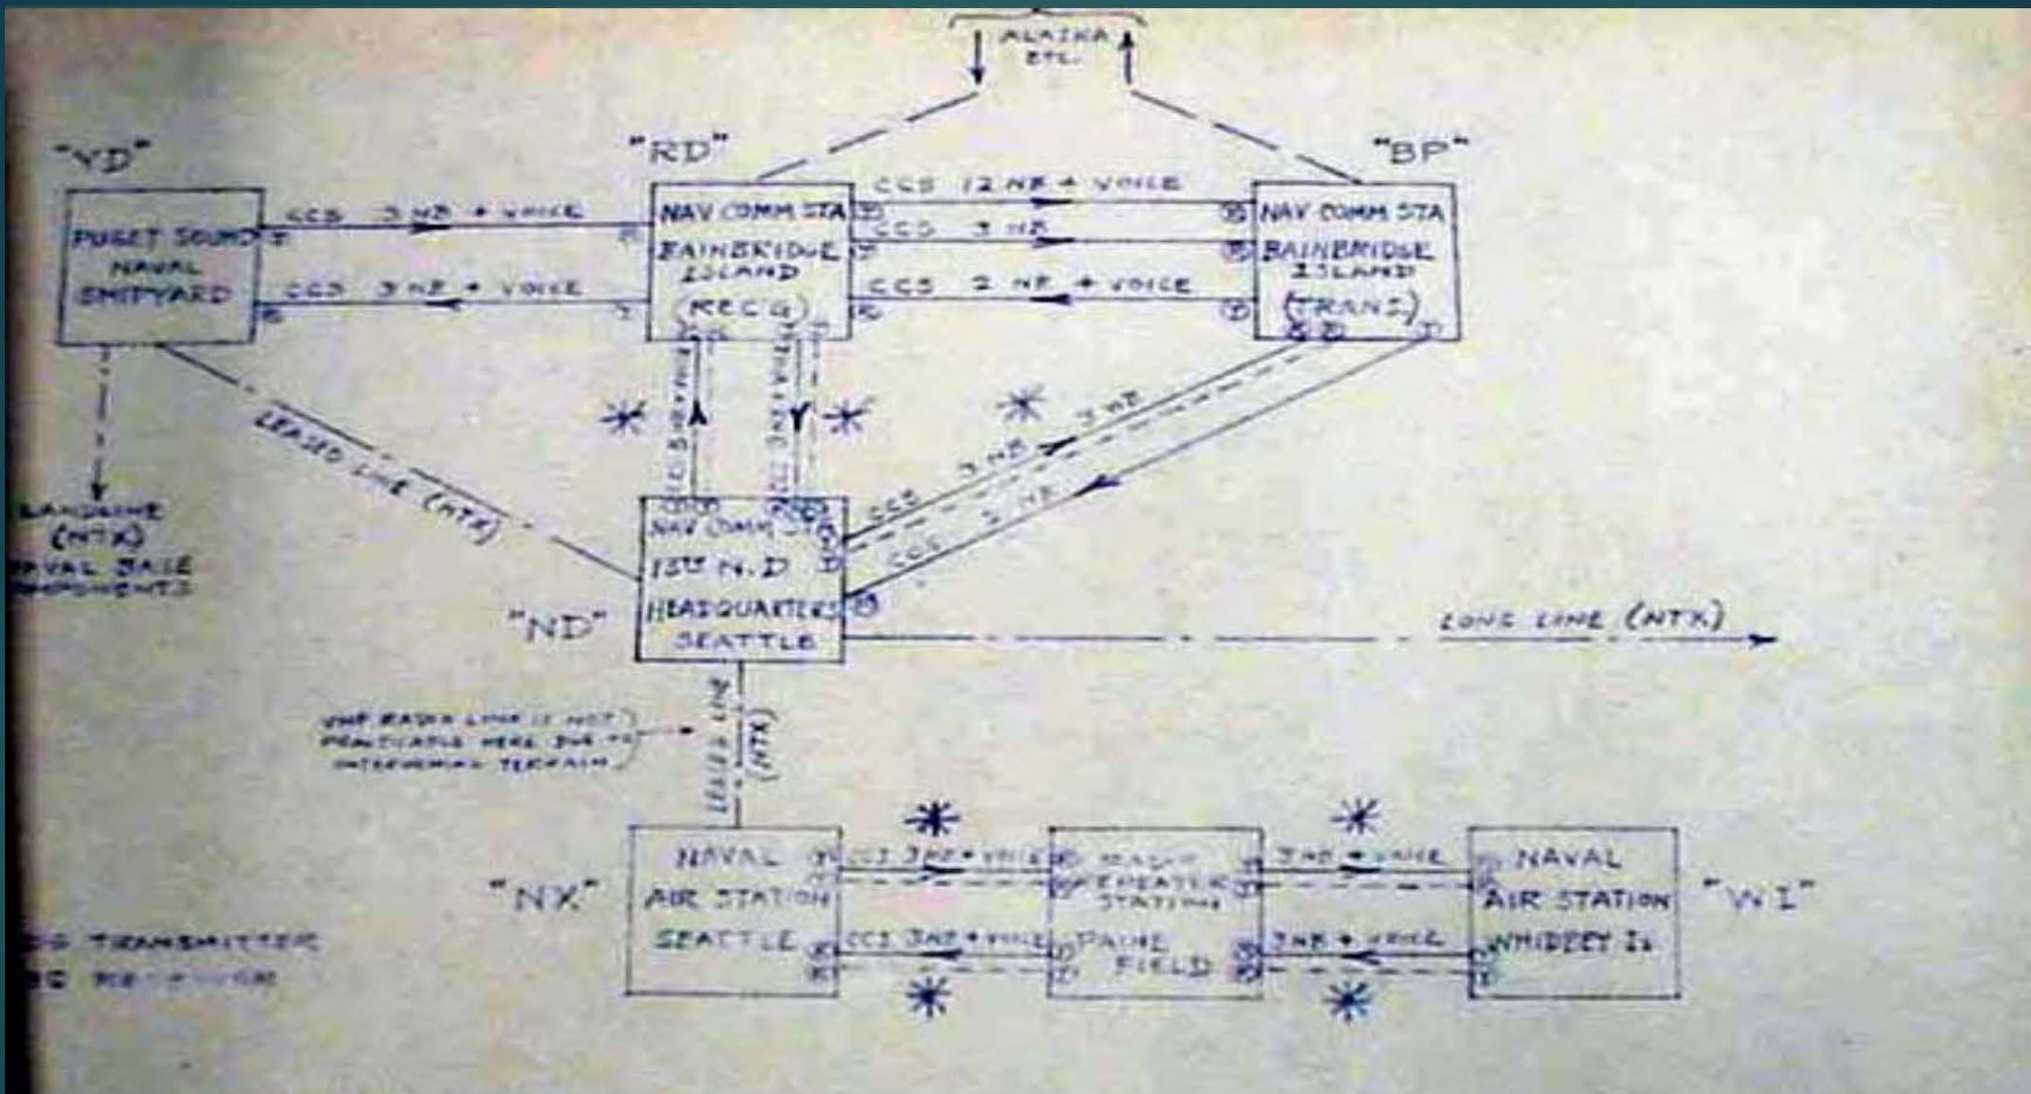 ALASKA
ETC.
"YD"
"RD"
"BP"
PUGET SOUND
NAVAL
SHIPYARD
CCS 3 NB + VOICE
CCS 3 NB + VOICE
NAV COMM STA
BAINBRIDGE
ISLAND
(RECG)
CCS 12 NB + VOICE
CCS 3 NB
CCS 2 NB + VOICE
NAV COMM STA
BAINBRIDGE
ISLAND
(TRANS)
LEASED LINE (NTX)
CCS 3 NB 3 NB
CCS 2 NB
LANDLINE
(NTX)
NAV COMM STA
13TH N.D
HEADQUARTERS
SEATTLE
"ND"
LONG LINE (NTX)
VHF RADIO LINK IS NOT
PRACTICABLE HERE DUE TO
TERRAIN
LEASED LINE
(NTX)
"NX"
NAVAL
AIR STATION
SEATTLE
CCS 3 NB + VOICE
CCS 3 NB + VOICE
RADIO
REPEATER
STATION
PAINE
FIELD
3 NB + VOICE
3 NB + VOICE
NAVAL
AIR STATION
WHIDBEY IS
"WI"
TRANSMITTER